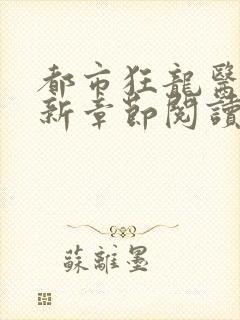 都市狂龍醫
新章節閱讀
蘇離墨